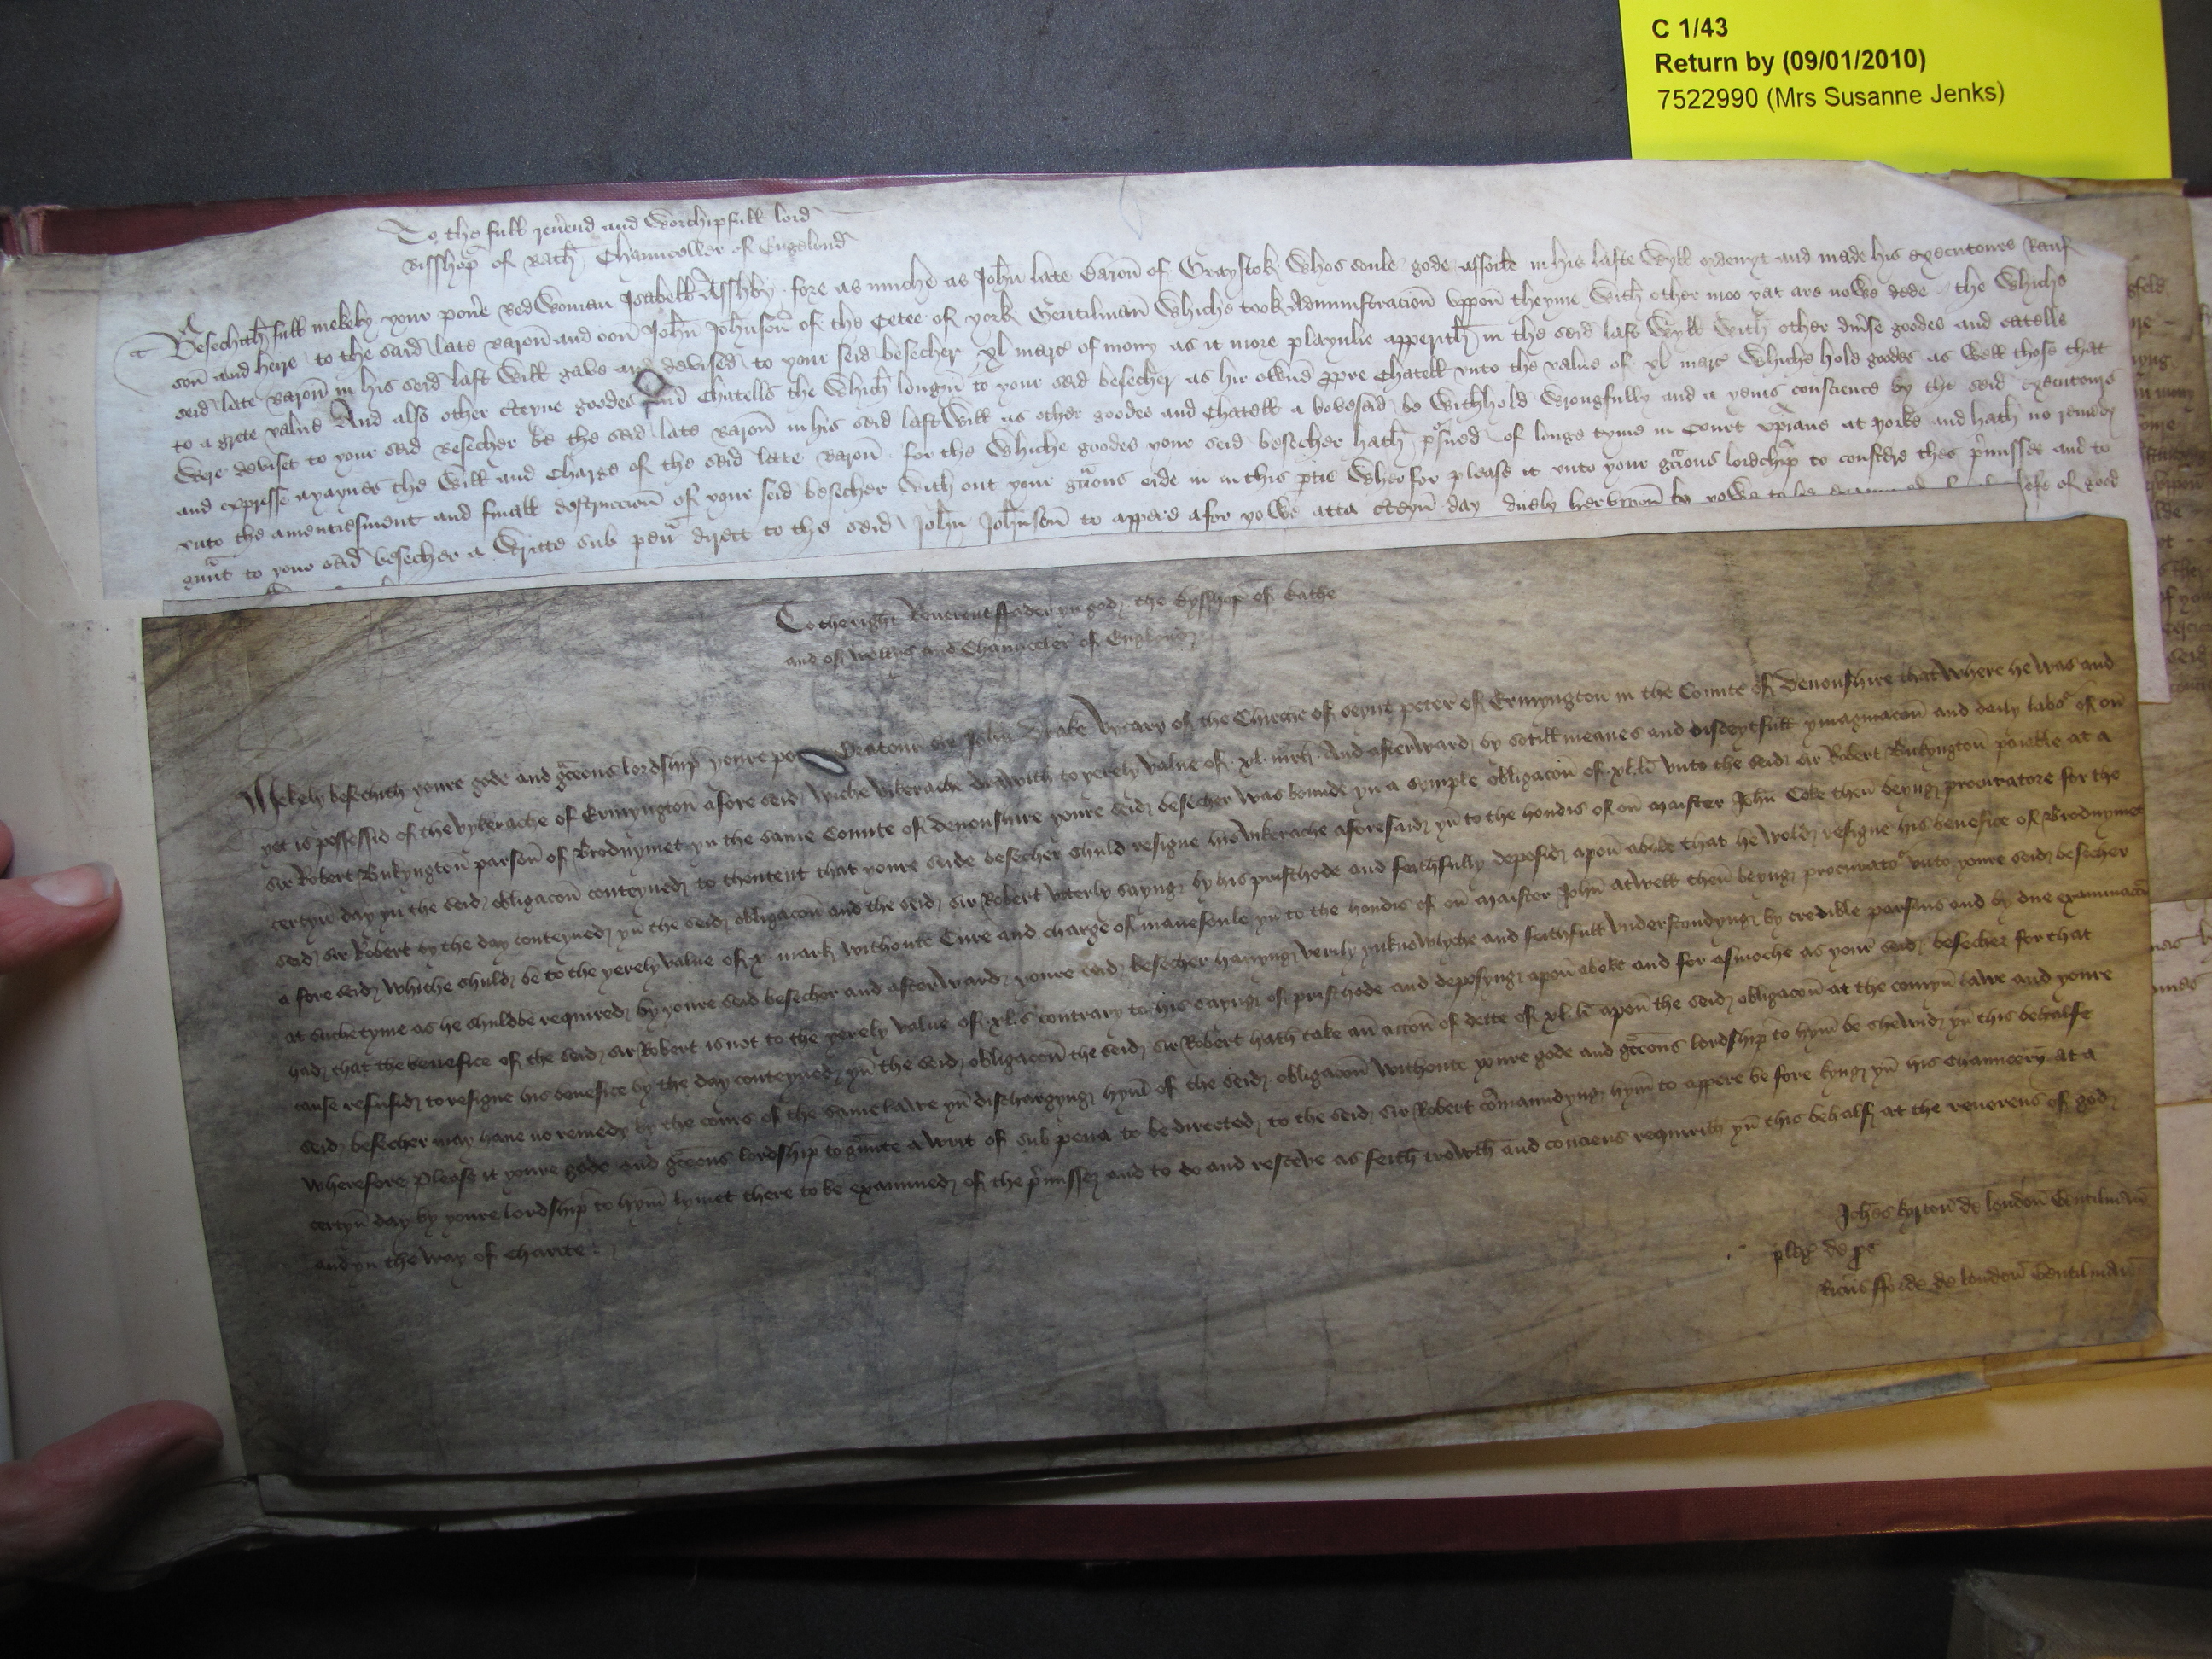 C 1/43
Return by (09/01/2010)
7522990 (Mrs Susanne Jenks)
To the full reu'end and Worchipfull lord
Bisshop of Bath Chaunceller of Engelond
Besechith full mekely your pou'e bedwoman Isabell Asshby fore as muche as John late Baron of Graystok whos soule gode assoile in his laste wyll ordenyt and made his executoures Rauf
son and heyre to the said late Baron and oon John Johnson of the Cetee of york Gentilman whiche took Administracion uppon theyme with other moo yat are nowe dede the whiche
seid late Baron in his seid last will gave and devised to your seid besecher xl marc of mony as it more playnlie apperith in the seid last wyll with other diu'se goodes and catells
to a grete value And also other c'teyne goodes and Chatells the which longyn to your seid besecher as hir owne propre Chatell vnto the value of xl marc whiche hold goodes as well those that
were deviset to your seid Besecher be the seid late Baron in his seid last will as other goodes and Chatell a bovesaid be withhold wrongfully and a yenis conscience by the seid executours
and expresse ayaynes the will and charge of the seid late Baron for the whiche goodes your seid besecher hath p'sued of longe tyme in Court xp'iane at yorke and hath no remedy
vnto the amentiesment and finall destruccion of your seid besecher with out your gracious eide in in this partie Wherfor please it vnto your gracious lordchip to considre thes p'misses and to
graunt to your seid besecher a writte sub pena direct to the seid John Johnson to appere afor yowe atta c'teyn day duely her vppon by yowe to be
To the right Reuerent ffader yn god the bysshop of Bathe
and of Wellys and Chaunceler of Englond
Mekely besechith youre gode and gracious lordship youre Oratour sir John Drake Vycary of the Chirche of seynt peter of Ermyngton in the Counte of Denonshire that where he was and
yet is possessid of the vykerache of Ermyngton afore seid wiche vikerache drawith to yerely value of xl mrk And afterward by sotill meanes and disceytfull ymaginacon and daily labor of on
sir Robert Bukyngton parson of Brodnymet yn the same Counte of Denonshire youre seid besecher was bounde yn a symple obligacon of xl li vnto the seid sir Robert Bukyngton paieble at a
certeyn day yn the seid obligacon conteyned to thentent that youre seide besecher shuld resigne his vikerache aforesaid yn to the hondis of on Maister John Coke then beyng procuratore for the
seid sir Robert by the day conteyned yn the seid obligacon and the seid sir Robert vterly sayng by his presthode and feithfully deposid apon a boke that he wold resigne his benefice of Brodnymet
a fore seid whiche shuld be to the yerely value of x mark withoute Cure and charge of mannesoule yn to the hondis of on Maister John Atwell then beyng procurator vnto youre seid besecher
at suche tyme as he shuld be required by youre seid besecher and afterward youre seid besecher hauyng verily yn knowlyche and feithfull vnderstondyng by credible parsons and by due examinacon
had that the benefice of the seid sir Robert is not to the yerely value of xl s contrary to his sayng of presthode and deposyng apon a boke and for asmoche as your seid besecher for that
cause refusid to resigne his benefice by the day conteyned yn the seid obligacon the seid sir Robert hath take an accon of dette of xl li apon the seid obligacon at the comyn lawe and youre
seid besecher may haue no remedy by the cours of the same lawe yn dischargyng hym of the seid obligacon withoute youre gode and gracious lordship to hym be shewid yn this behalfe
Wherefore Please it youre gode and gracious lordship to graunte a writ of sub pena to be directed to the seid sir Robert comaundyng hym to appere be fore kyng yn his Chauncery at a
certeyn day by youre lordship to hym lymet there to be examined of the p'misses and to do and resceve as feith trowth and conciens requirith yn this behalf at the reuerens of god
and yn the way of charite
Joh'es kyrton de london Gentilman
pleg' de pr'
Ric'us fforde de london Gentilman